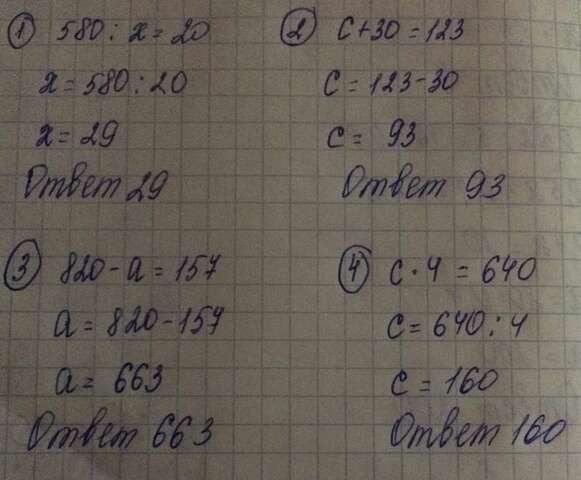 ① 580 : x = 20
x = 580 : 20
x = 29
Ответ 29
② c + 30 = 123
c = 123 - 30
c = 93
Ответ 93
③ 820 - a = 157
a = 820 - 157
a = 663
Ответ 663
④ c · 4 = 640
c = 640 : 4
c = 160
Ответ 160